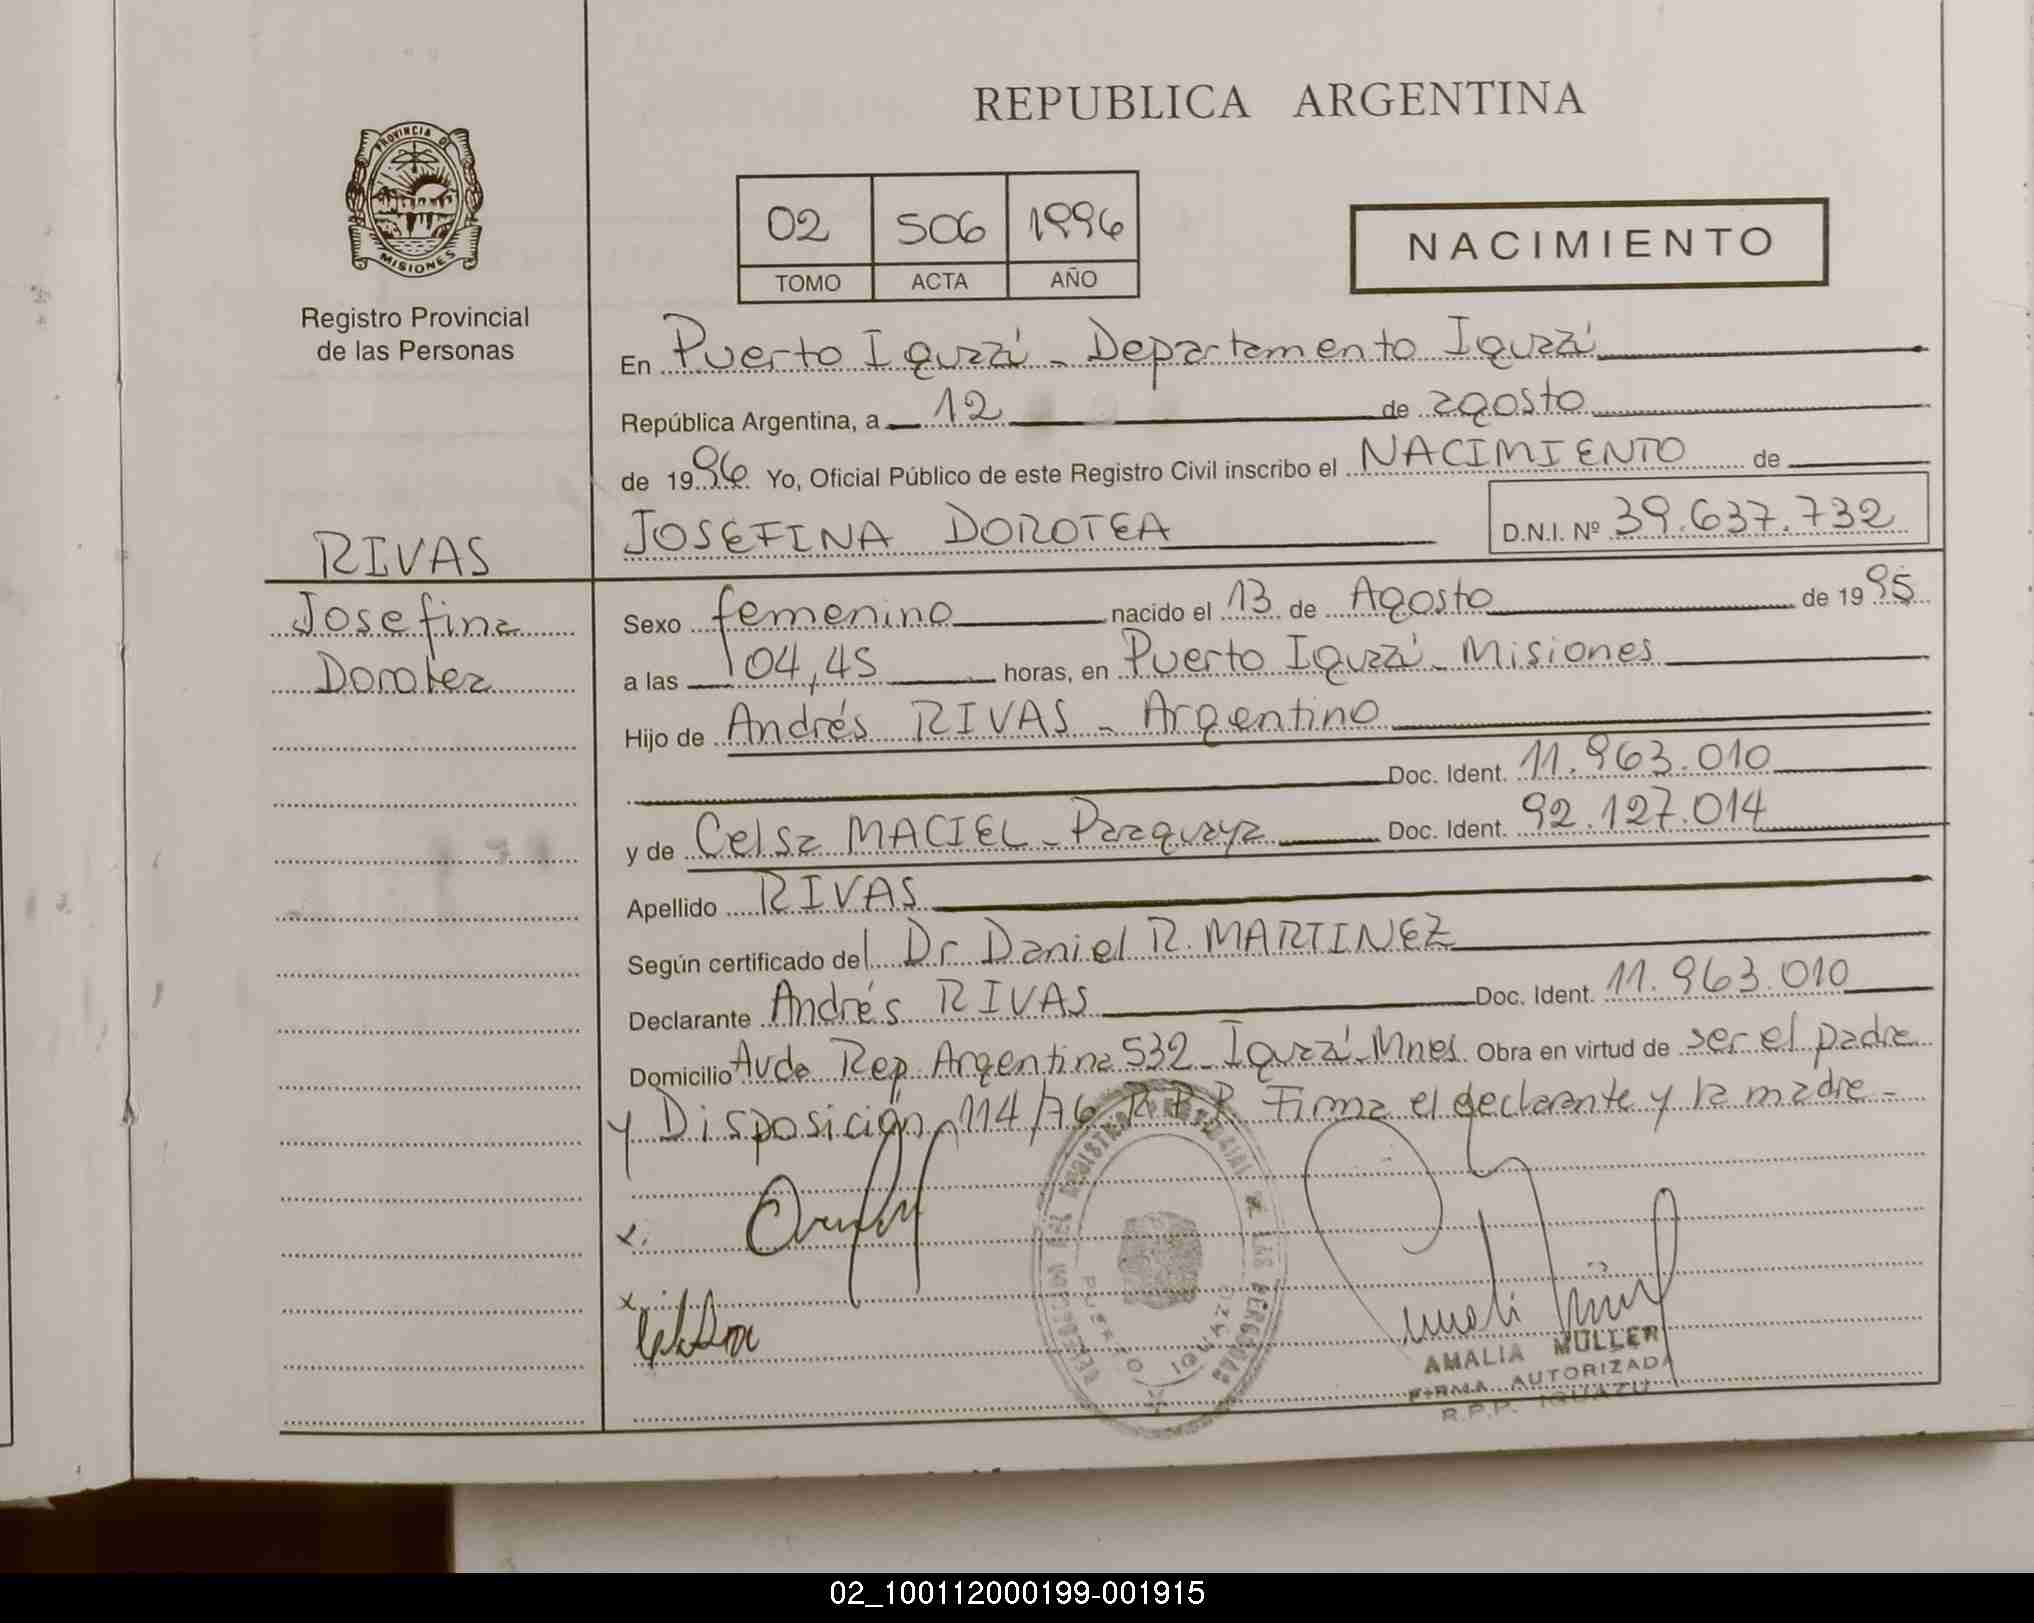 REPUBLICA ARGENTINA
PROVINCIA DE
MISIONES
Registro Provincial
de las Personas
02 506 1996
TOMO ACTA AÑO
NACIMIENTO
En Puerto Iguazú - Departamento Iguazú
República Argentina, a 12 de agosto
de 1996 Yo, Oficial Público de este Registro Civil inscribo el NACIMIENTO de
JOSEFINA DOROTEA D.N.I. Nº 39.637.732
RIVAS
Josefina
Dorotea
Sexo femenino nacido el 13 de Agosto de 1995
a las 04,45 horas, en Puerto Iguazú - Misiones
Hijo de Andrés RIVAS - Argentino
Doc. Ident. 11.963.010
y de Celsa MACIEL - Paraguaya Doc. Ident. 92.127.014
Apellido RIVAS
Según certificado del Dr Daniel R. MARTINEZ
Declarante Andrés RIVAS Doc. Ident. 11.963.010
Domicilio Avda Rep. Argentina 532 - Iguazú - Mnes. Obra en virtud de ser el padre
y Disposición 114/76 R.P.P. Firma el declarante y la madre -
x.
x.
DEL REGISTRO PROVINCIAL DE LAS PERSONAS
PUERTO IGUAZU
AMALIA MULLER
FIRMA AUTORIZADA
R.P.P. IGUAZU
02_100112000199-001915